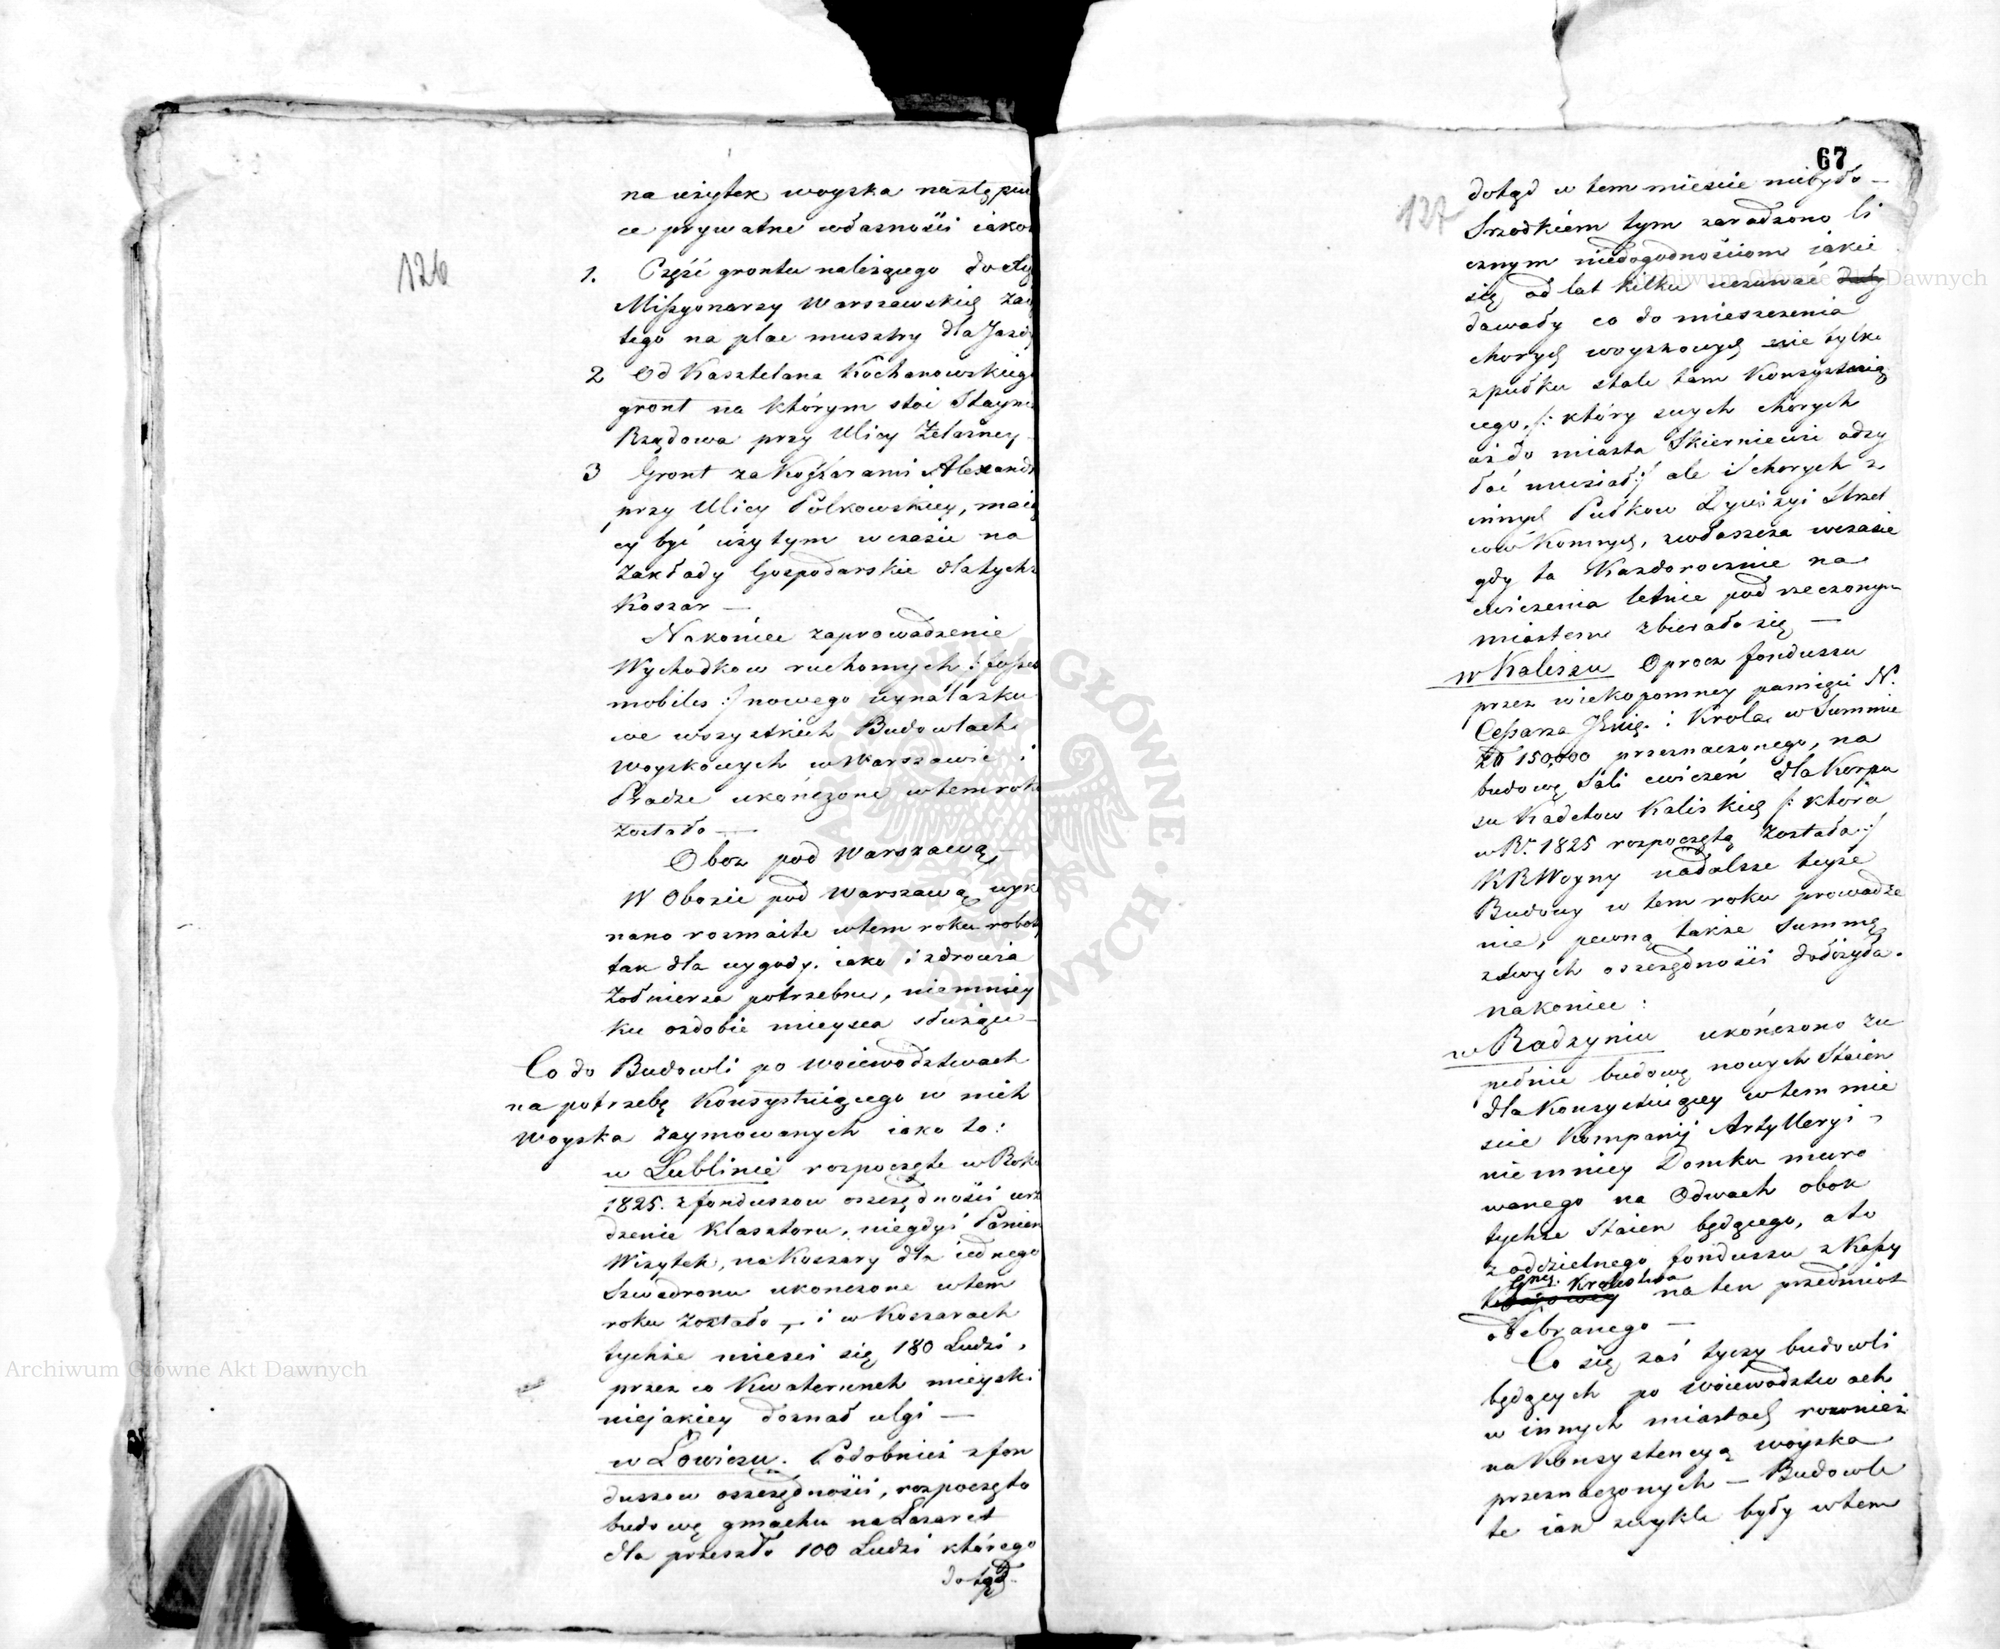 126
na użytek woyska następuią
ce prywatne własności iako:
1. Część grontu należącego do
Missyonarzy Warszawskich
tego na plac musztry dla Jazdy
2 Od Kasztelana Kochanowskiego
gront na którym stoi Staynia
Rządowa przy Ulicy Żelazney
3 Gront za Koszarami Alexandr
przy Ulicy Polkowskiey, maią
cy być użytym w czasie na
Zakłady Gospodarskie dla tychże
Koszar —
Nakoniec zaprowadzenie
Wychodkow ruchomych /: fosses
mobiles :/ nowego wynalazku
we wszystkich Budowlach
Woyskowych w Warszawie i
Pradze ukończone w tem roku
zostało —
Oboz pod Warszawą,—
W Obozie pod Warszawą wyko
nano rozmaite w tem roku roboty
tak dla wygody, iako i zdrowia
Żołnierza potrzebne, niemniey
ku ozdobie mieysca służące —
Co do Budowli po Woiewodztwach
na potrzebę Konsystuiącego w nich
Woyska zaymowanych iako to:
w Lublinie rozpoczęte w Roku
1825. z funduszow oszczędności urzą
dzenie Klasztoru, niegdyś Panien
Wizytek, na Koszary dla iednego
Szwadronu ukonczone w tem
roku zostało, — i w Koszarach
tychże mieści się 180 Ludzi,
przez co Kwaterunek mieyski
niejakiey doznał ulgi —
w Łowiczu. Podobnież z fon
duszow oszczędności, rozpoczęto
budowę gmachu na Lazaret
dla przeszło 100 Ludzi którego
dotąd.
67
127
dotąd w tem mieście niebyło —
Srzodkiem tym zaradzono li
cznym niedogodnościom iakie
się od lat kilku uczuwać dały
dawały co do mieszczenia
chorych woyskowych nie tylko
z pułku stale tam Konsystuią
cego, /: który swych chorych
aż do miasta Skierniewic odsy
łać musiał :/ ale i chorych z
innych Pułkow Dywizyi Strzel
cow Konnych, zwłaszcza w czasie
gdy ta Kazdorocznie na
cwiczenia letnie pod rzeczonym
miastem zbierała się —
w Kaliszu Oprocz fonduszu
przez wiekopomney pamięci N.
Cesarza Jmię. i Krola w Summie
Zł 150,000 przeznaczonego, na
budowę Sali cwiczeń dla Korpu
su Kadetow Kaliskich /: która
w R. 1825 rozpoczętą została :/
KRWoyny na dalsze teyże
Budowy w tem roku prowadze
nie, pewną także Summę
z swych oszczędności dołożyła.
nakoniec:
w Radzyniu ukończono zu
pełnie budowę nowych Staien
dla Konsystuiącey w tem mie
scie Kompanij Artylleryi,
niemniey Domku muro
wanego na Odwach obok
tychże Staien będącego, a to
z oddzielnego fonduszu z Kassy
Gnej. Krolestwa
na ten przedmiot
odebranego —
Co się zaś tyczy budowli
będących po Woiewodztwach
w innych miastach rownież
na Konsystencyą woyska
przeznaczonych — Budowle
te iak zwykle były w tem
Archiwum Główne Akt Dawnych
Archiwum Główne Akt Dawnych
ARCHIWUM GŁÓWNE AKT DAWNYCH